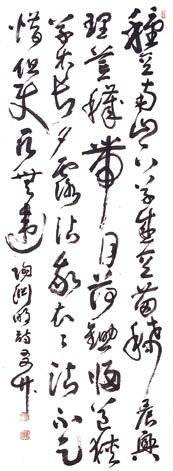 種豆南山下草盛豆苗稀晨興
理荒穢帶月荷鋤歸道狹
草木長夕露沾我衣々沾不足
惜但使願無違
陶淵明詩